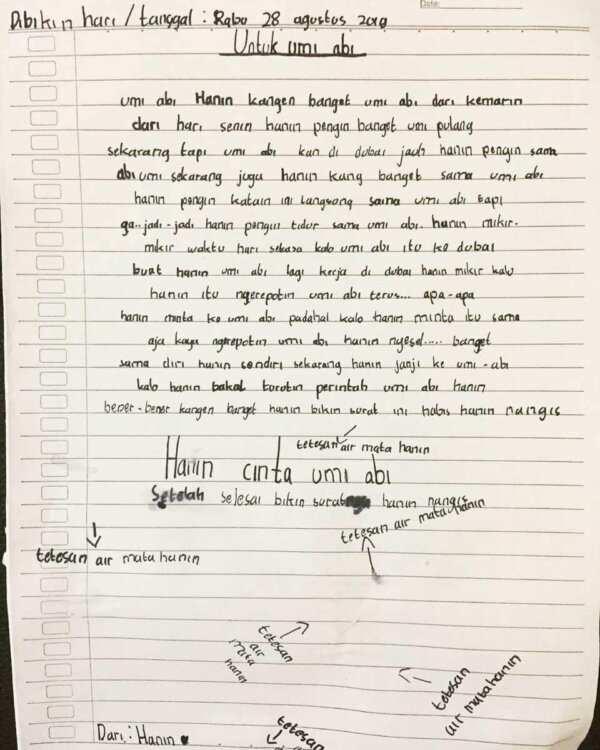 Date:
Dibikin hari / tanggal : Rabo 28 agustus 2019
Untuk umi abi
umi abi Hanin kangen banget umi abi dari kemarin
dari hari senin hanin pengin banget umi pulang
sekarang tapi umi abi kan di dubai jauh hanin pengin sama
abi umi sekarang juga hanin kang banget sama umi abi
hanin pengin katain ini langsong sama umi abi tapi
ga..jadi-jadi hanin pengin tidur sama umi abi. hanin mikir.
mikir waktu hari sekasa kalo umi abi itu ke dubai
buat hanin umi abi lagi kerja di dubai hanin mikir kalu
hanin itu ngerepotin umi abi terus... apa-apa
hanin minta ke umi abi padahal kalo hanin minta itu sama
aja kaya ngerepotin umi abi hanin nyesel..... banget
sama diri hanin sendiri sekarang hanin janji ke umi-abi
kalo hanin bakal torotin perintah umi abi hanin
bener-bener kangen banget hanin bikin surat ini habis hanin nangis
tetesan air mata hanin
Hanin cinta umi abi
Setelah selesai bikin surat hanin nangis
tetesan air mata hanin
tetesan air mata hanin
tetesan
air
mata
hanin
tetosan
air mata hanin
Dari : Hanin
tetesan